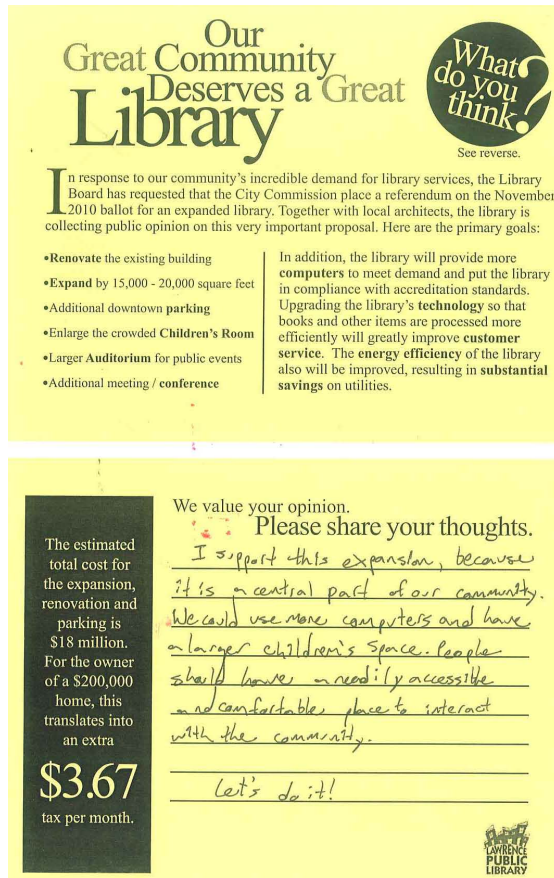 Our
Great Community
Deserves a Great
Library
What
do you
think?
See reverse.
In response to our community's incredible demand for library services, the Library
Board has requested that the City Commission place a referendum on the November
2010 ballot for an expanded library. Together with local architects, the library is
collecting public opinion on this very important proposal. Here are the primary goals:
•Renovate the existing building
•Expand by 15,000 - 20,000 square feet
•Additional downtown parking
•Enlarge the crowded Children's Room
•Larger Auditorium for public events
•Additional meeting / conference
In addition, the library will provide more
computers to meet demand and put the library
in compliance with accreditation standards.
Upgrading the library's technology so that
books and other items are processed more
efficiently will greatly improve customer
service. The energy efficiency of the library
also will be improved, resulting in substantial
savings on utilities.
The estimated
total cost for
the expansion,
renovation and
parking is
$18 million.
For the owner
of a $200,000
home, this
translates into
an extra
$3.67
tax per month.
We value your opinion.
Please share your thoughts.
I support this expansion, because
it is a central part of our community.
We could use more computers and have
a larger children's space. People
should have a readily accessible
and comfortable place to interact
with the community.
Let's do it!
LAWRENCE
PUBLIC
LIBRARY